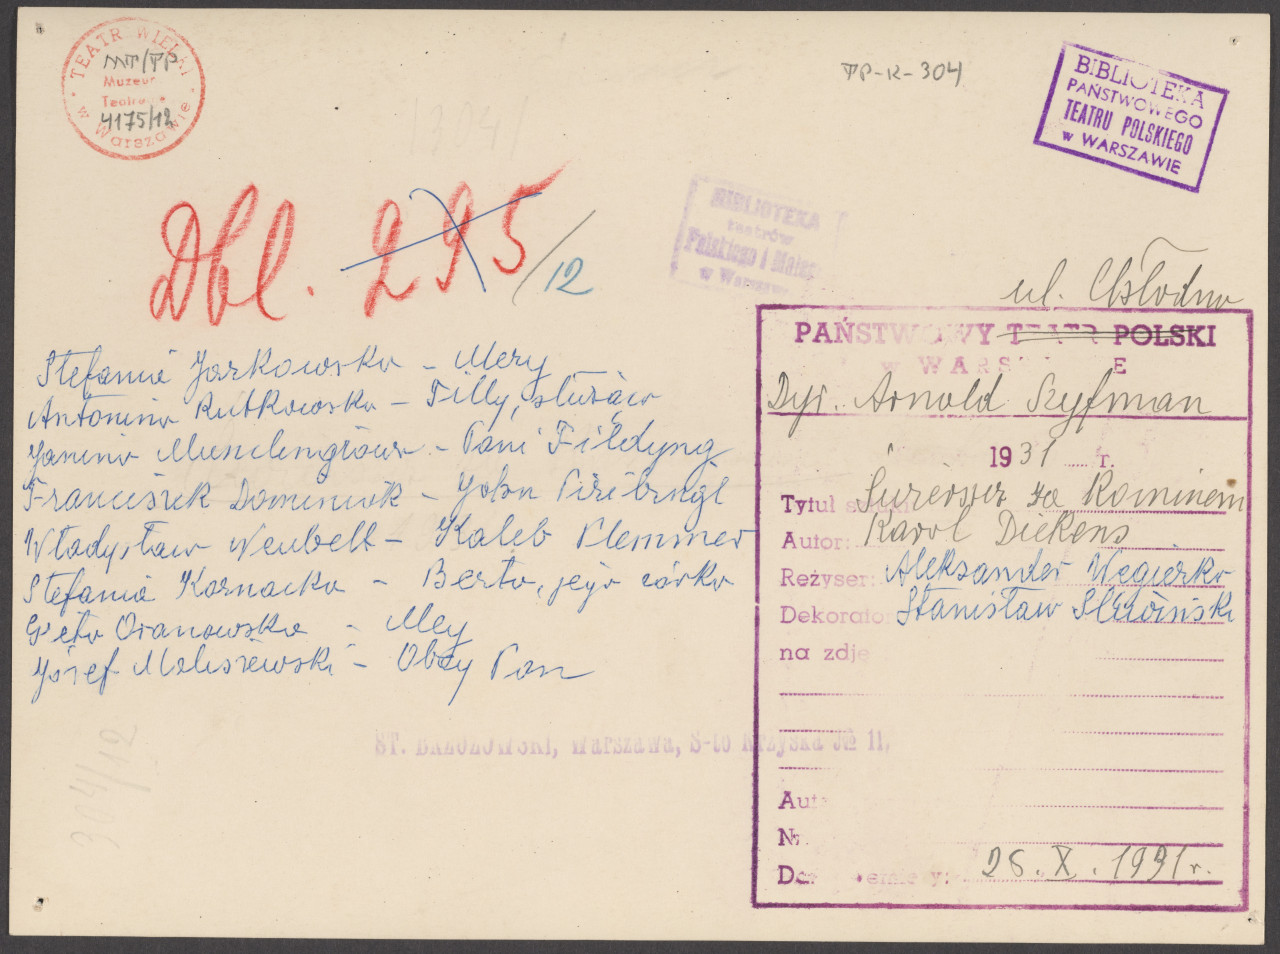 TEATR WIELKI
MT/TP
Muzeum
Teatralne
4175/12
w Warszawie
TP-K-304
BIBLIOTEKA
PAŃSTWOWEGO
TEATRU POLSKIEGO
w WARSZAWIE
Dbl. 295/12
BIBLIOTEKA
teatrów
Polskiego i Małego
w Warszawie
ul. Chłodna
PAŃSTWOWY TEATR POLSKI
w WARSZ E
Dyr. Arnold Szyfman
1931 r.
Tytuł sztuki Świerszcz za Kominem
Autor: Karol Dickens
Reżyser: Aleksander Węgierko
Dekorator Stanisław Śliwiński
na zdję
Aut
Nr
Dat premiery: 28. X. 1931 r.
Stefania Jarkowska - Mery
Antonina Rutkowska - Tilly, służąca
Janina Munclingrowa - Pani Fildyng
Franciszek Dominiak - John Piribingl
Władysław Neubelt - Kaleb Plemmer
Stefania Kornacka - Berta, jego córka
Greta Oranowska - Mey
Józef Maliszewski - Obcy Pan
ST. BRZOZOWSKI, Warszawa, S-to Krzyska № 11.
304/12